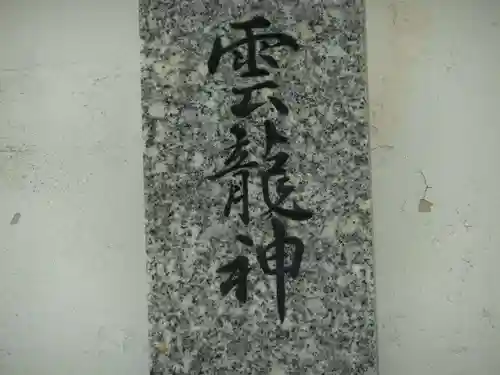 雲龍神